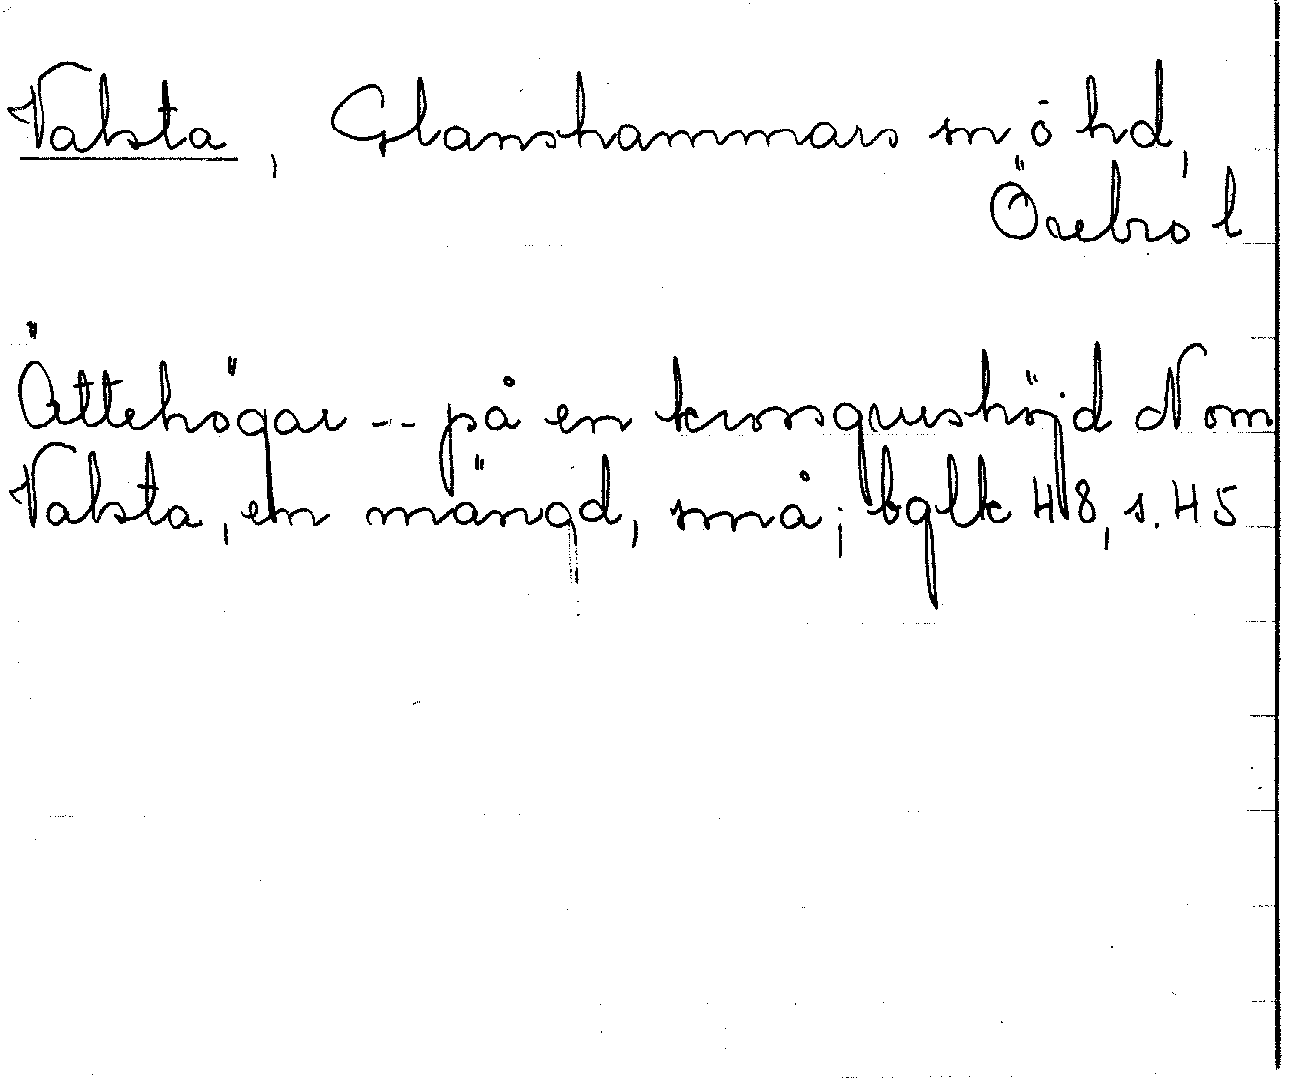 Valsta, Glanshammars sn ö hd,
Örebro l
Ättehögar -- på en krossgrushöjd N om
Valsta, en mängd, små; bglk 48, s. 45